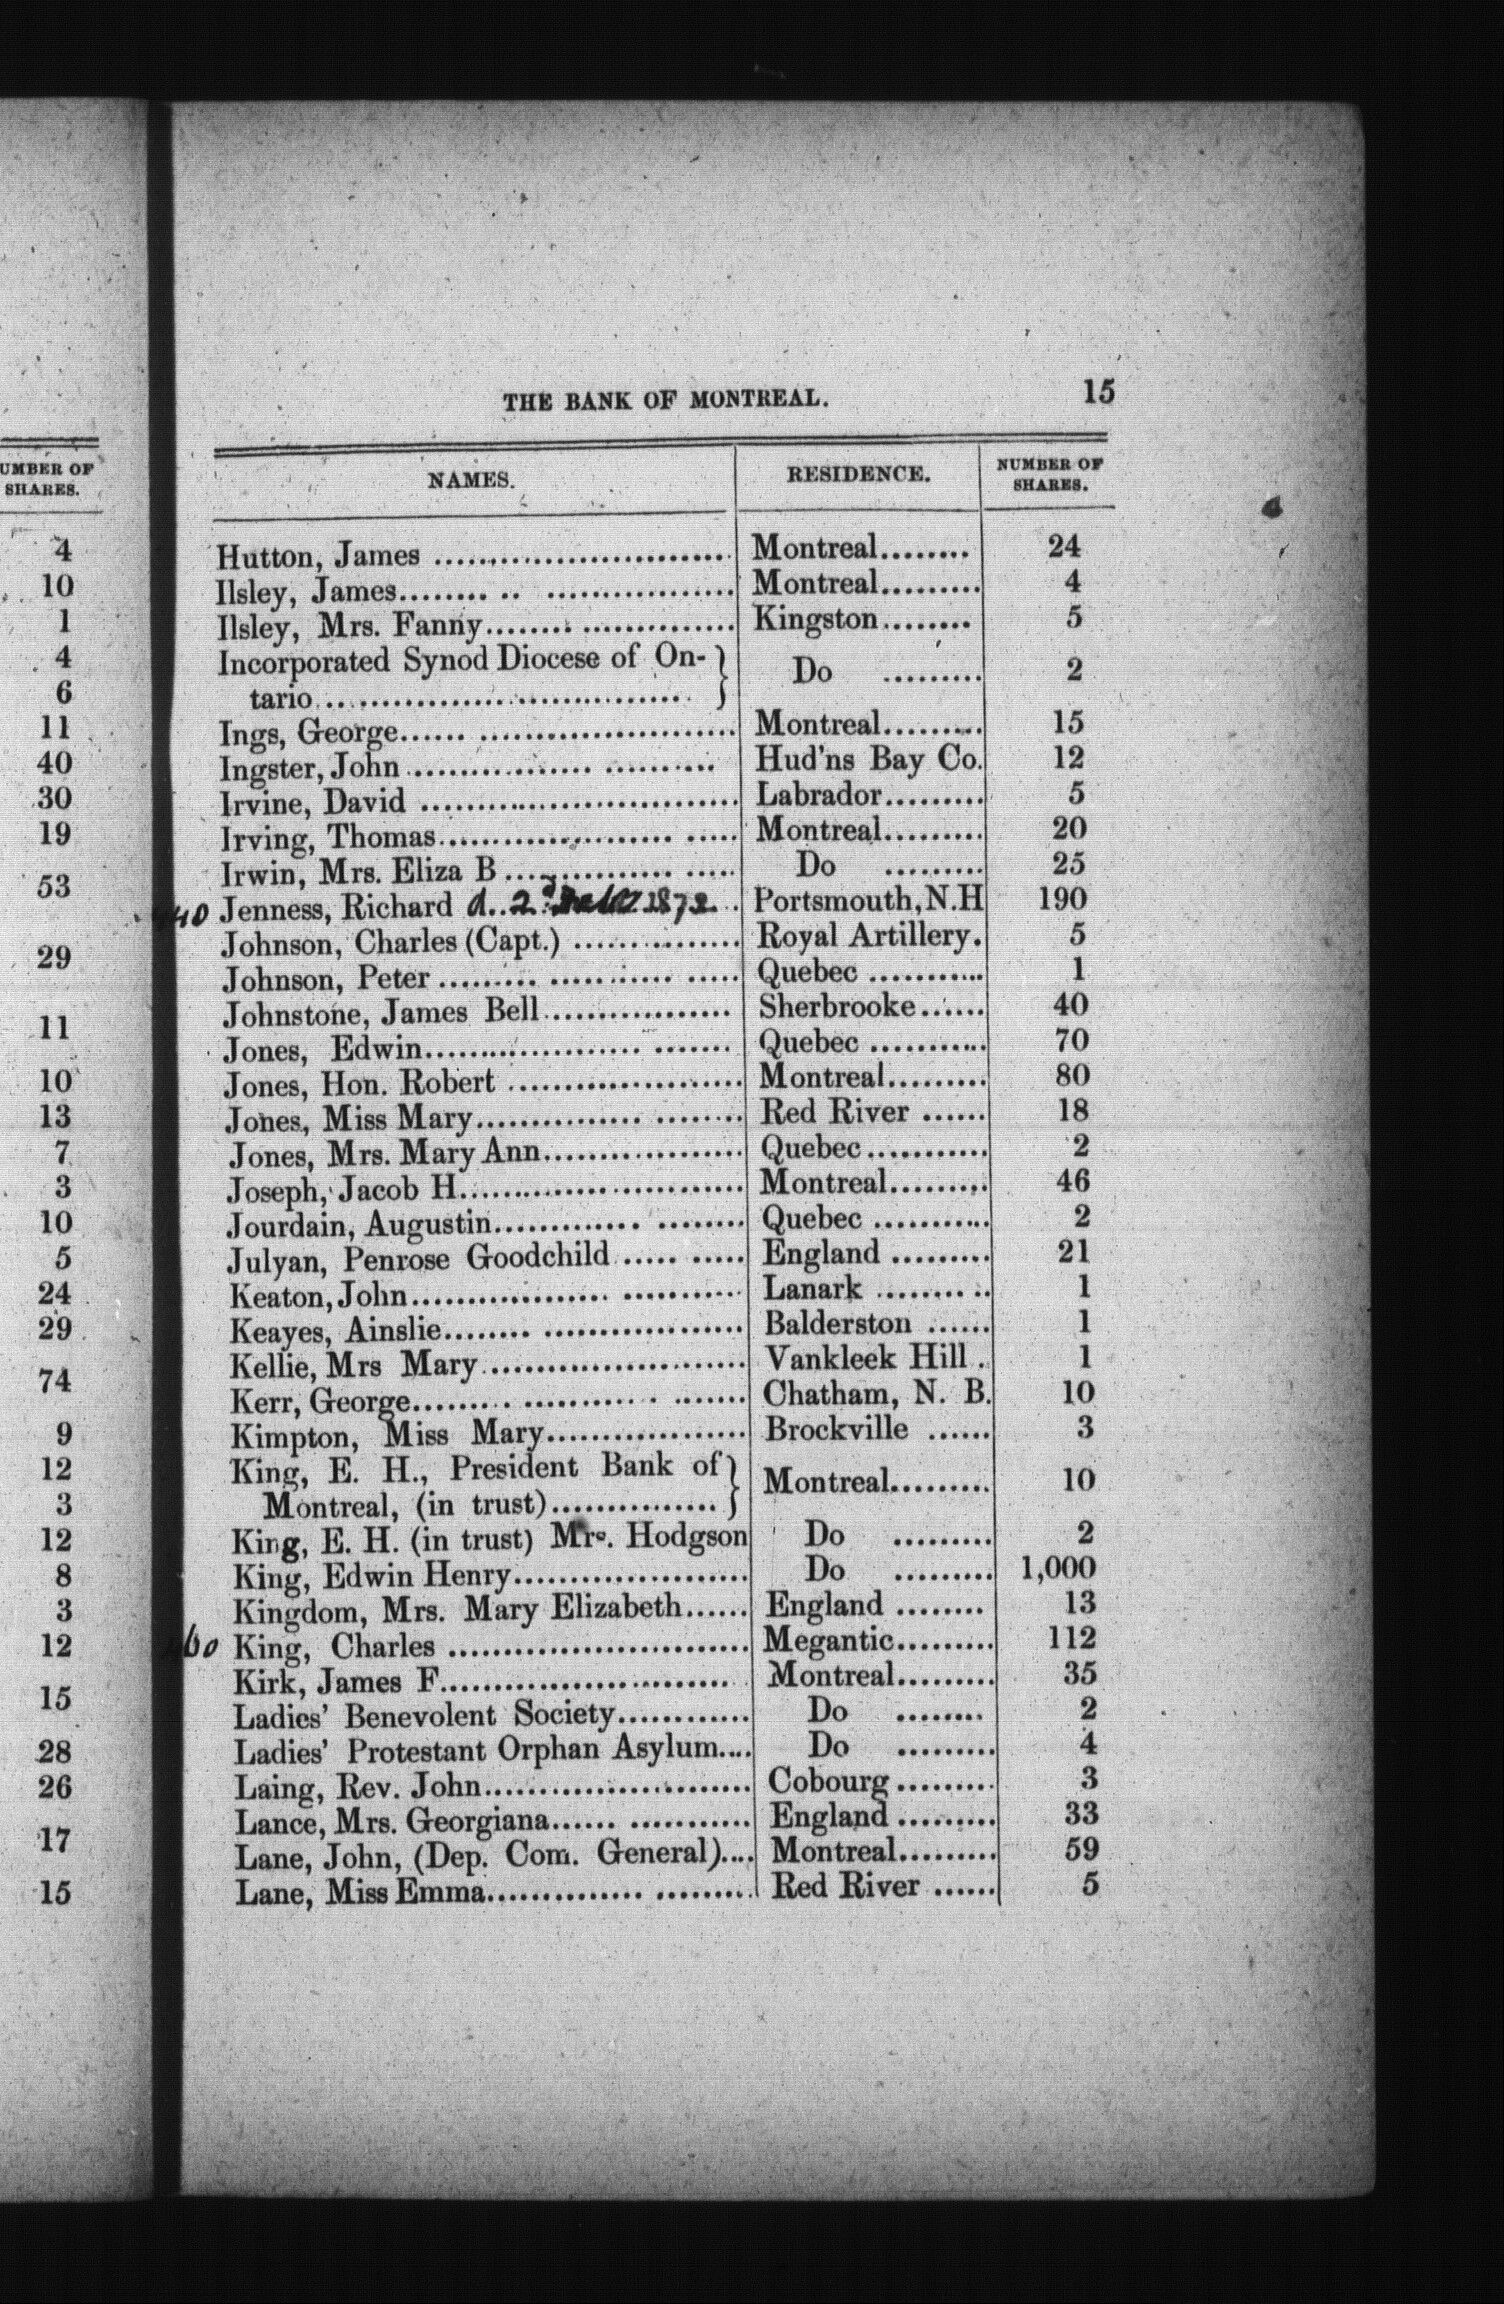 UMBER OF
SHARES.
4
10
1
4
6
11
40
30
19
53
29
11
10
13
7
3
10
5
24
29
74
9
12
3
12
8
3
12
15
28
26
17
15
THE BANK OF MONTREAL. 15
NAMES. RESIDENCE. NUMBER OF SHARES.
Hutton, James ........................ Montreal........ 24
Ilsley, James........................ Montreal......... 4
Ilsley, Mrs. Fanny..................... Kingston........ 5
Incorporated Synod Diocese of On- } Do ......... 2
tario..............................
Ings, George........................ Montreal......... 15
Ingster, John ........................ Hud'ns Bay Co. 12
Irvine, David ........................ Labrador......... 5
Irving, Thomas........................ Montreal......... 20
Irwin, Mrs. Eliza B .................. Do ......... 25
Jenness, Richard d. 2d 1872. Portsmouth, N.H 190
Johnson, Charles (Capt.) ............... Royal Artillery. 5
Johnson, Peter ........................ Quebec ........... 1
Johnstone, James Bell................ Sherbrooke...... 40
Jones, Edwin........................ Quebec ........... 70
Jones, Hon. Robert .................. Montreal......... 80
Jones, Miss Mary..................... Red River ...... 18
Jones, Mrs. Mary Ann.................. Quebec........... 2
Joseph, Jacob H..................... Montreal......... 46
Jourdain, Augustin..................... Quebec ........... 2
Julyan, Penrose Goodchild .......... England ......... 21
Keaton, John........................ Lanark .......... 1
Keayes, Ainslie........................ Balderston ...... 1
Kellie, Mrs Mary..................... Vankleek Hill . 1
Kerr, George........................ Chatham, N. B. 10
Kimpton, Miss Mary.................. Brockville ...... 3
King, E. H., President Bank of } Montreal......... 10
Montreal, (in trust)...............
King, E. H. (in trust) Mrs. Hodgson Do ......... 2
King, Edwin Henry..................... Do ......... 1,000
Kingdom, Mrs. Mary Elizabeth...... England ........ 13
King, Charles ........................ Megantic......... 112
Kirk, James F........................ Montreal......... 35
Ladies' Benevolent Society............ Do ........ 2
Ladies' Protestant Orphan Asylum.... Do ......... 4
Laing, Rev. John..................... Cobourg......... 3
Lance, Mrs. Georgiana.................. England ......... 33
Lane, John, (Dep. Com. General).... Montreal......... 59
Lane, Miss Emma..................... Red River ...... 5